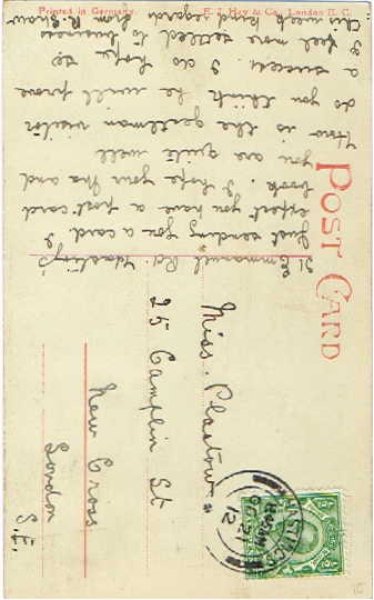 POST CARD
Printed in Germany.
E. J. Hey & Co., London E.C.
21 Emmanuel Rd. Hastings
Just sending you a card. I
expect you have a post card
book. I hope your Ma and
you are quite well
How is the gentleman visitor
do you think he will prove
a success. I do hope so
I feel more settled to business
this week kind regards from R. Shaw
Miss. Plastow.
25 Camplin St
New Cross
London
S.E.
OC 21
12